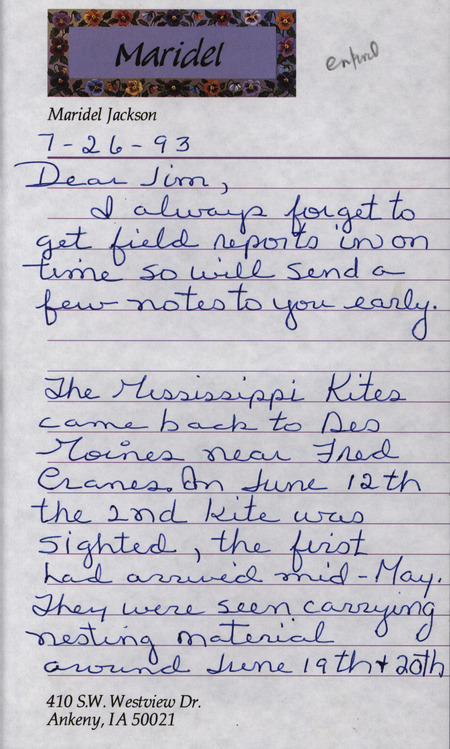 Maridel
Maridel Jackson
7-26-93
Dear Jim,
I always forget to
get field reports in on
time so will send a
few notes to you early.
The Mississippi Kites
came back to Des
Moines near Fred
Cranes. On June 12th
the 2nd kite was
sighted, the first
had arrived mid-May.
They were seen carrying
nesting material
around June 19th + 20th
410 S.W. Westview Dr.
Ankeny, IA 50021